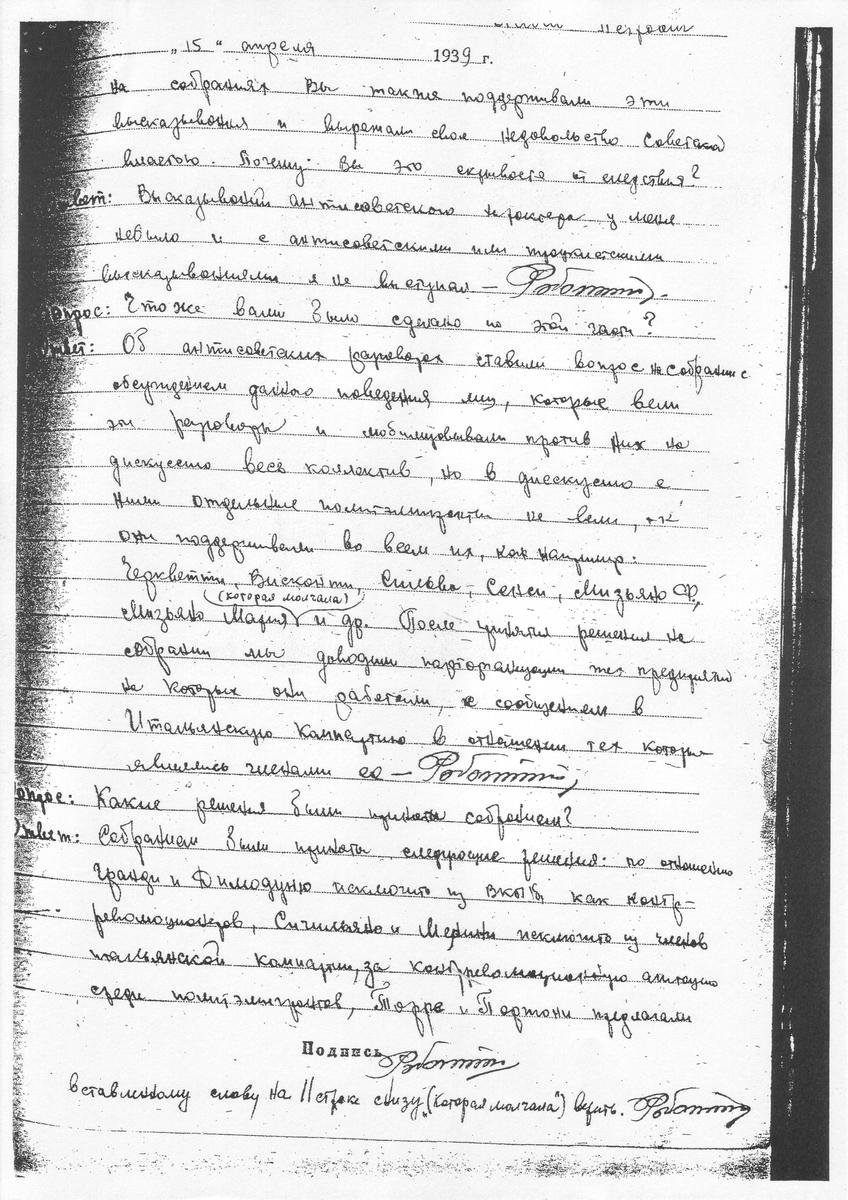 Петрович
„15“ апреля 1939 г.
на собраниях Вы также поддерживали эти
высказывания и выражали свое недовольство советской
властью. Почему Вы это скрываете от следствия?
Ответ: Высказываний антисоветского характера у меня
небыло и с антисоветскими или троцкистскими
высказываниями я не выступал — Роботти
Вопрос: Что же вами было сделано по этой части?
Ответ: Об антисоветских разговорах ставили вопрос на собрании с
обсуждением данного поведения лиц, которые вели
эти разговоры и мобилизовывали против них на
дискуссию весь коллектив, но в дискуссию с
ними отдельные политэмигранты не вели, т.к
они поддерживали во всем их, как например:
Черкветти, Висконти, Сильва, Сенси, Мизьяно Ф,
(которая молчала)
Мизьяно Мария и др. После принятия решения на
собрании мы доводили парторганизации тех предприятий
на которых они работали, с сообщением в
Итальянскую компартию в отношении тех которые
являлись членами ее — Роботти
Вопрос: Какие решения были приняты собранием?
Ответ: Собранием были приняты следующие решения: по отношению
Гранди и Димодуньо исключить из ВКП/б как контр-
революционеров, Сичильяно и Мерини исключить из членов
итальянской компартии, за контрреволюционную агитацию
среди политэмигрантов, Торре и Портони предлагали
Подпись Роботти
вставленному слову на 11 строке снизу „(которая молчала“) верить. Роботти